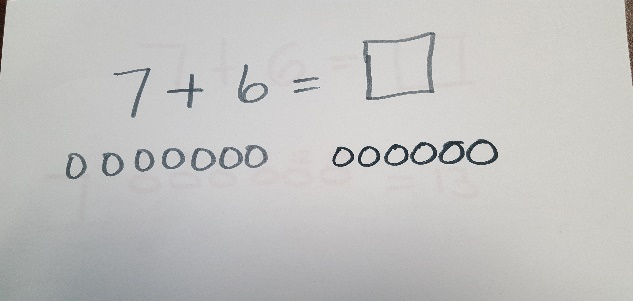 7 + 6 = □
0 0 0 0 0 0 0 0 0 0 0 0 0